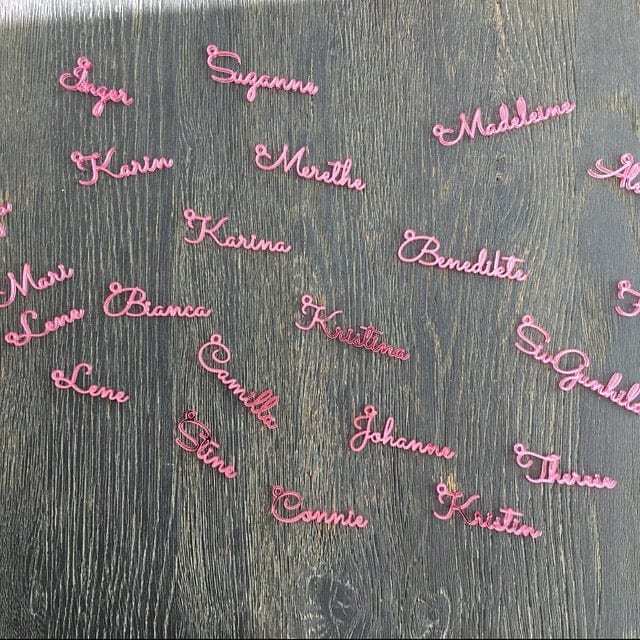 Inger
Suzanne
Madeleine
Karin
Merethe
Karina
Benedikte
Mari
Bianca
Lene
Kristina
Camilla
Lene
Johanne
Stine
Therese
Connie
Kristin